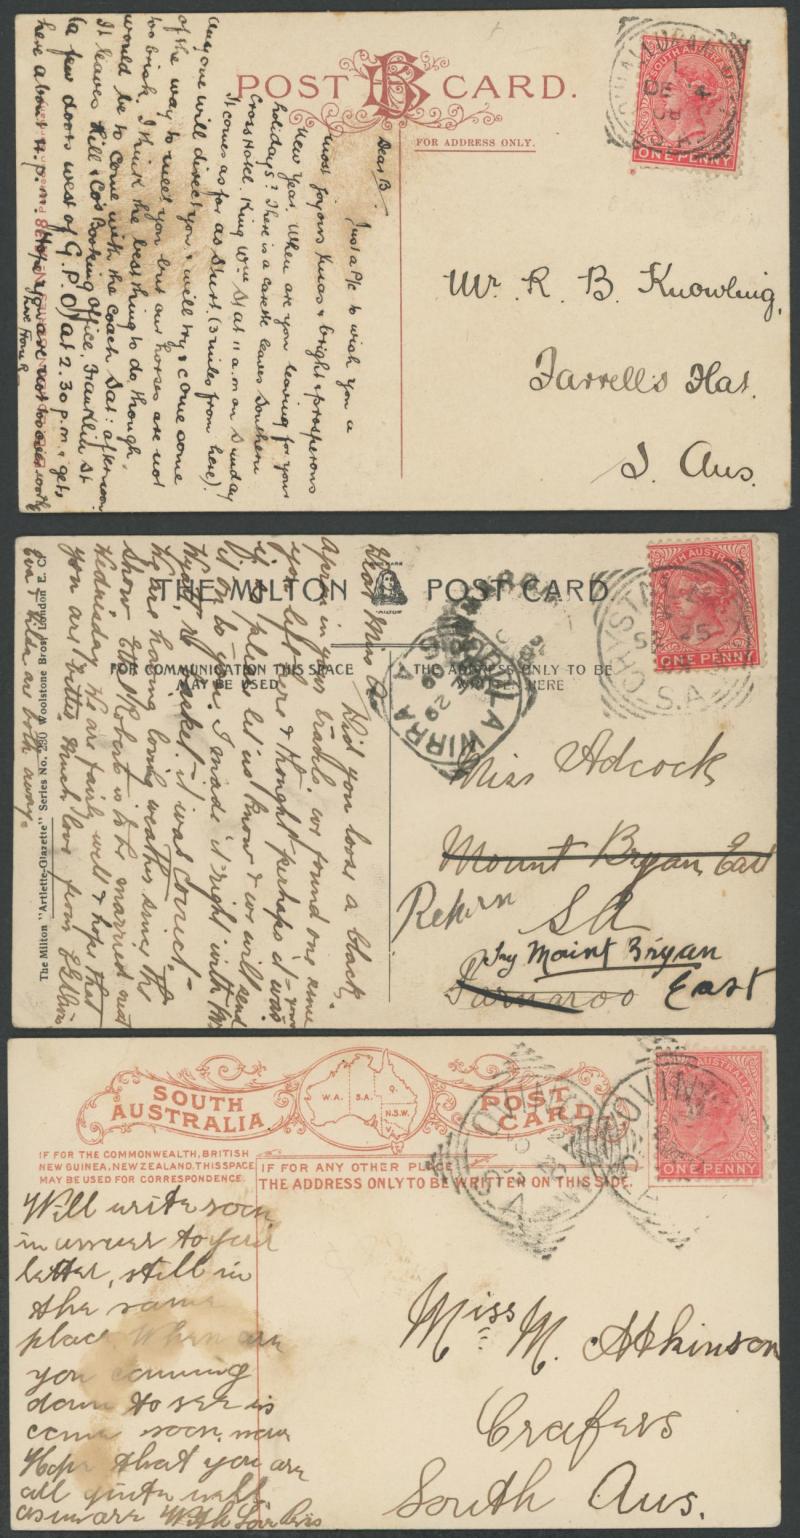 POST CARD.
FOR ADDRESS ONLY.
SOUTH AUSTRALIA
ONE PENNY
DE 4
08
Dear B.
Just a P/c to wish you a
most joyous Xmas & bright & prosperous
New Year. When are you leaving for your
holidays? There is a cart leaves Southern
Cross Hotel. King Wm St at 11 a.m on Sunday
It comes as far as Sturt. (3 miles from here).
Anyone will direct you & I will try & come some
of the way to meet you but our horses are not
too brisk. I think the best thing to do, though,
would be to come with the coach Sat: afternoon
It leaves Hill & Co's Booking Office, Franklin St
(a few doors west of G.P.O) at 2.30 p.m. & gets
here about 4 p.m. Hope you are not too
Mr. R. B. Knowling,
Farrell's Flat.
S. Aus.
THE MILTON POST CARD
MILTON
FOR COMMUNICATION THIS SPACE
MAY BE USED
THE ADDRESS ONLY TO BE
WRITTEN HERE
SOUTH AUSTRALIA
ONE PENNY
CRYSTAL
25
S.A
WIRRA
29
09
Dear Miss
Did you loose a black
apron in your travels. we found one since
you left here & thought perhaps it was yours
if so please let us know & we will send
it on to you. I made it right with Mr
Wyatt, ticket it was correct.
We are having lovely weather since the
Show. Roberts is to be married next
Wednesday. We are fairly well & hope that
you are better. Much love from
Eva & Hilda are both away.
The Milton "Artlette-Glazette" Series No. 230 Woolstone Bros., London E.C.
Miss Adcock
Mount Bryan East
Return S A
Try Mount Bryan
East
SOUTH
AUSTRALIA
W.A. S.A. Q. N.S.W.
POST
CARD
IF FOR THE COMMONWEALTH, BRITISH
NEW GUINEA, NEW ZEALAND, THIS SPACE
MAY BE USED FOR CORRESPONDENCE.
IF FOR ANY OTHER PLACE
THE ADDRESS ONLY TO BE WRITTEN ON THIS SIDE.
SOUTH AUSTRALIA
ONE PENNY
Will write soon
in answer to your
letter, still in
the same
place. When are
you comming
down to see us
come soon. now
Hope that you are
all quite well
as we are With Love
Miss M. Atkinson
Crafers
South Aus.